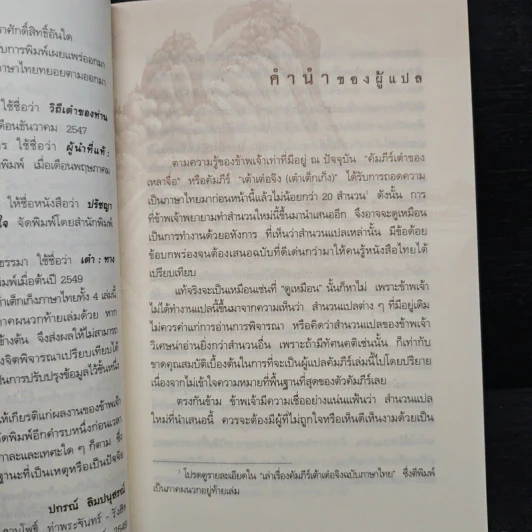 าศักดิ์สิทธิ์อันใด
รับการพิมพ์เผยแพร่ออกมา
ภาษาไทยทยอยตามออกมา
ใช้ชื่อว่า วิถีเต๋าของท่าน
เดือนธันวาคม 2547
ใช้ชื่อว่า ผู้นำที่แท้ :
พิมพ์ เมื่อเดือนพฤษภาคม
ใช้ชื่อหนังสือว่า ปรัชญา
จัดพิมพ์โดยสำนักพิมพ์
ธรรมา ใช้ชื่อว่า เต๋า : ทาง
พิมพ์เมื่อต้นปี 2549
ำเต๋าเต็กเก็งภาษาไทยทั้ง 4 เล่มนี้
ภาคผนวกท้ายเล่มด้วย หาก
ข้างต้น จึงส่งผลให้ไม่สามารถ
งจิตพิจารณาเปรียบเทียบได้
เป็นการปรับปรุงข้อมูลไว้ชั้นหนึ่ง
ให้เกียรติแก่ผลงานของข้าพเจ้า
จัดพิมพ์อีกคำรบหนึ่งก่อนเวลา
กาละและเทศะใด ๆ ก็ตาม ซึ่ง
ฐานะที่เป็นเหตุหรือเป็นปัจจัย
ปกรณ์ ลิมปนุสรณ์
ท่าพระจันทร์ - รังสิต
2549
คำนำของผู้แปล
ตามความรู้ของข้าพเจ้าเท่าที่มีอยู่ ณ ปัจจุบัน "คัมภีร์เต๋าของ
เหลาจื่อ" หรือคัมภีร์ "เต้าเต๋อจิง (เต๋าเต็กเก็ง)" ได้รับการถอดความ
เป็นภาษาไทยมาก่อนหน้านี้แล้วไม่น้อยกว่า 20 สำนวน¹ ดังนั้น การ
ที่ข้าพเจ้าพยายามทำสำนวนใหม่นี้ขึ้นมานำเสนออีก จึงอาจจะดูเหมือน
เป็นการทำงานด้วยอหังการ ที่เห็นว่าสำนวนแปลเหล่านั้น มีข้อด้อย
ข้อบกพร่องจนต้องเสนอฉบับที่ดีเด่นกว่ามาให้คนรู้หนังสือไทยได้
เปรียบเทียบ
แท้จริงจะเป็นเหมือนเช่นที่ "ดูเหมือน" นั้นก็หาไม่ เพราะข้าพเจ้า
ไม่ได้ทำงานแปลนี้ขึ้นมาจากความเห็นว่า สำนวนแปลต่าง ๆ ที่มีอยู่เดิม
ไม่ควรค่าแก่การอ่านการพิจารณา หรือคิดว่าสำนวนแปลของข้าพเจ้า
วิเศษน่าอ่านยิ่งกว่าสำนวนอื่น เพราะถ้ามีทัศนคติเช่นนั้น ก็เท่ากับ
ขาดคุณสมบัติเบื้องต้นในการที่จะเป็นผู้แปลคัมภีร์เล่มนี้ไปโดยปริยาย
เนื่องจากไม่เข้าใจความหมายที่พื้นฐานที่สุดของตัวคัมภีร์เลย
ตรงกันข้าม ข้าพเจ้ามีความเชื่ออย่างแน่นแฟ้นว่า สำนวนแปล
ใหม่ที่นำเสนอนี้ ควรจะต้องมีผู้ที่ไม่ถูกใจหรือเห็นดีเห็นงามด้วยเป็น
¹ โปรดดูรายละเอียดใน "เล่าเรื่องคัมภีร์เต้าเต๋อจิงฉบับภาษาไทย" ซึ่งตีพิมพ์
เป็นภาคผนวกอยู่ท้ายเล่ม